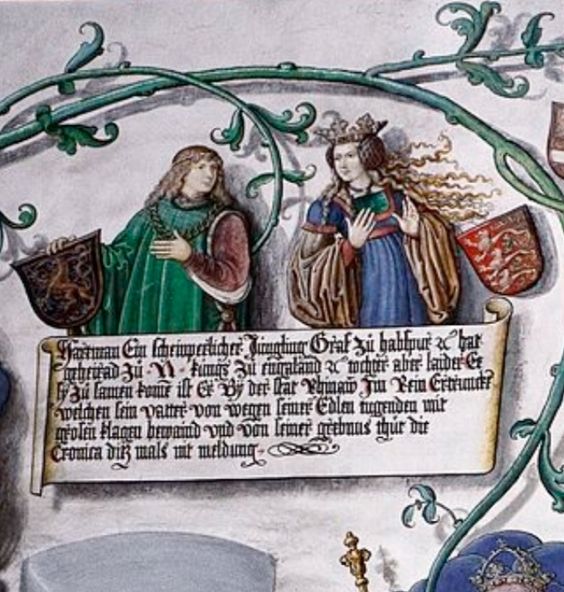 Hartman Ein scheinperlicher Jüngling Graf zü habspurg ꝛc hat
geheirad zü N kunigs zü engaland ꝛc tochter aber laider Ee
sy zü samen kome ist Er by der stat Rhinaw Jm Rein Ertruncke
welchen sein vatter von wegen seiner Edlen tugenden mit
grosen klagen bewaind vnd von seiner grebnus thüt die
Cronica diz mals nit meldung